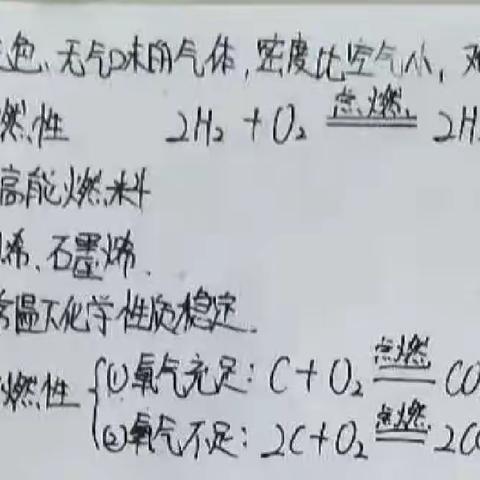 色、无气味的气体,密度比空气小,难
燃性 2H₂ + O₂ 点燃 2H
高能燃料
烯、石墨烯.
常温下化学性质稳定.
燃性 ①氧气充足: C + O₂ 点燃 CO
②氧气不足: 2C + O₂ 点燃 2CO